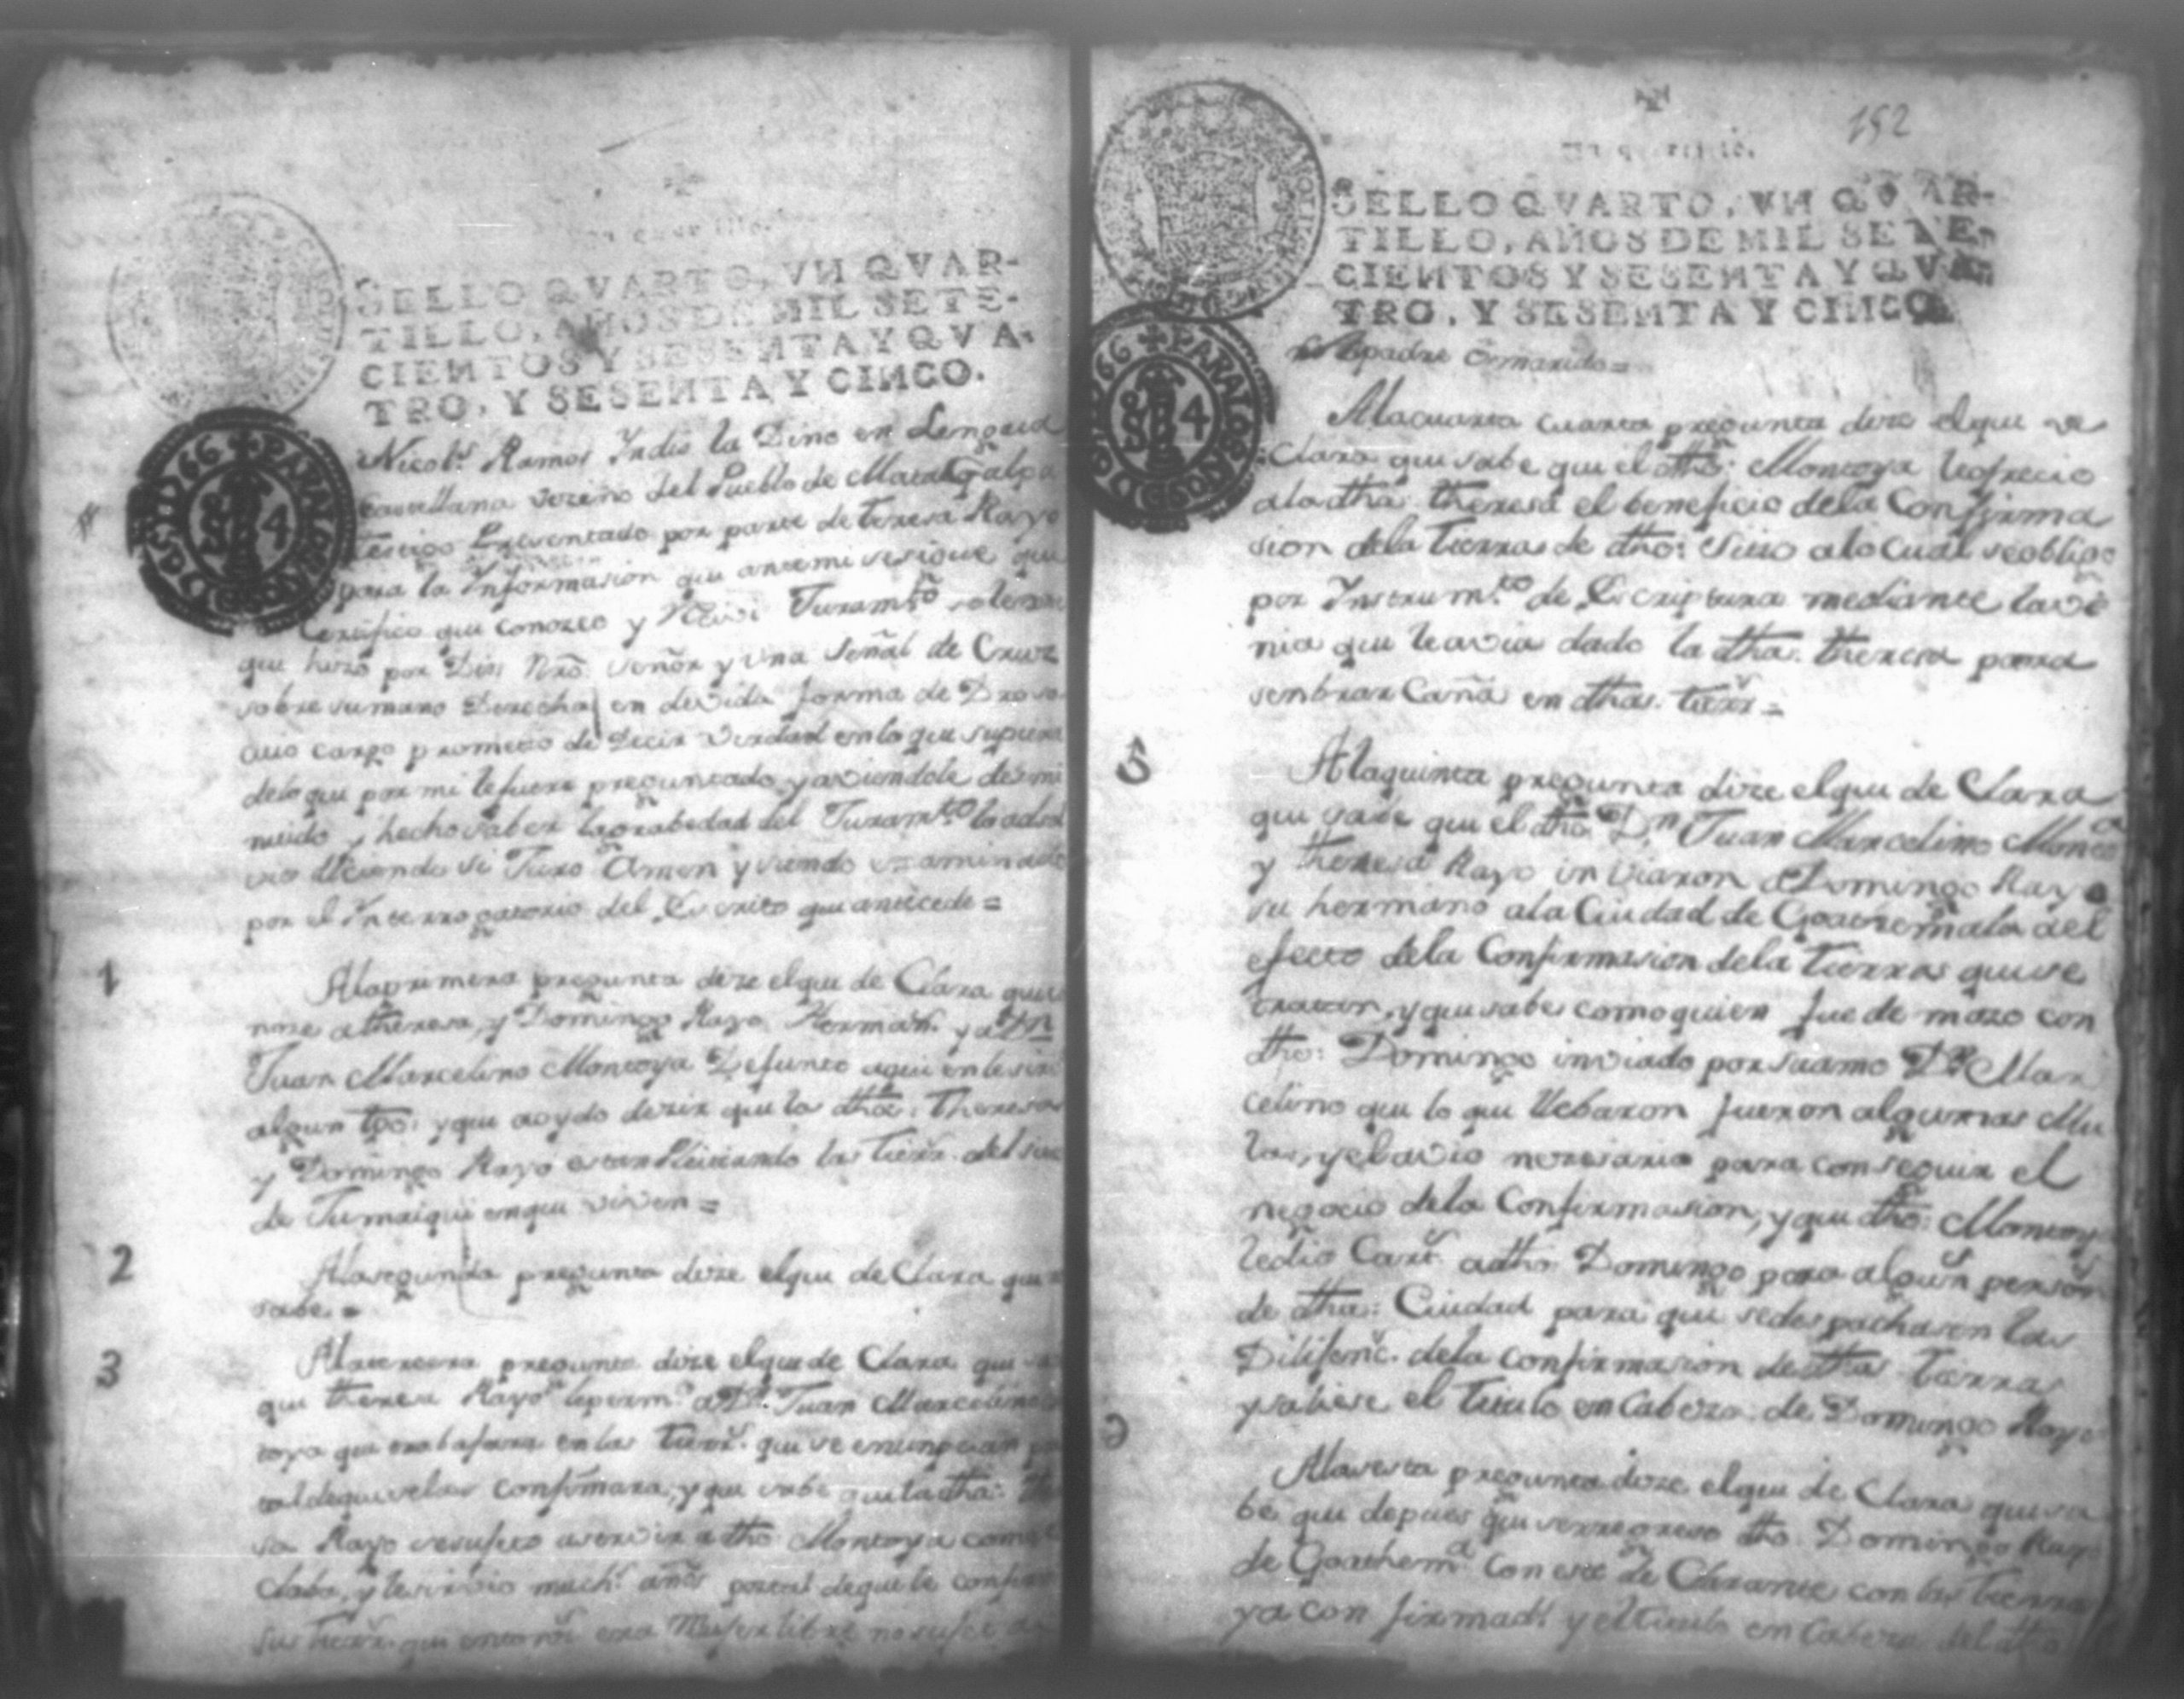 Un quartillo.
SELLO QVARTO, VN QVAR-
TILLO, AÑOS DE MIL SETE-
CIENTOS Y SESENTA Y QVA-
TRO, Y SESENTA Y CINCO.
PARA LOS AÑOS D 1766
4
Nicols Ramos Yndio la Dino en Lengua
Castellana vezino del Pueblo de Matagalpa
testigo Presentado por parte de teresa Rayo
para la Ynformasion que antemi se sigue que
Certifico que conozco y Juramto solemne
que hizo por Dios Nro señor y vna señal de Cruz
sobre su mano Derecha en devida forma de Dro so
cuio cargo prometio de Decir verdad en lo que supiere
delo que por mi le fuere preguntado y aviendole
nuido y hecho saber la grabedad del Juramto
vio diciendo si Juro Amen y siendo examinado
por el Ynterrogatorio del Escrito que antecede =
1 Ala primera pregunta dize el que de Clara que
nose a theresa, y Domingo Rayo Herman. y a Dn
Juan Marcelino Montoya Defunto aqui en
algun tpo: y que a oydo dezir que la dha: Theresa
y Domingo Rayo estan las tierr. del
de Jumaiqui en que viven =
2 Ala segunda pregunta dize el que de Clara que
sabe =
3 Ala tercera pregunta dize el que de Clara que
que theresa Rayo a Dn. Juan Marcelino
toya que trabajara en las tierr. que se enunpcian
tal de que se las confirmara, y que sabe que la dha:
sa Rayo se sujeto a servir a dho Montoya como
Claba, y le sirvio much. años por tal de que le
sus tierr. que entons era Mujer libre no
152
Un quartillo.
SELLO QVARTO, VN QVAR-
TILLO, AÑOS DE MIL SETE-
CIENTOS Y SESENTA Y QVA-
TRO, Y SESENTA Y CINCO.
PARA LOS AÑOS D 1766
4
padre o marido =
Ala cuarta cuarta pregunta dize el que de
Clara que sabe que el dho: Montoya le ofrecio
a la dha: theresa el beneficio dela Confirma
sion dela tierras de dho: Sitio alo cual se obligo
por Ynstrumto de Escriptura mediante la ve
nia que le avia dado la dha. theresa para
senbrar Caña en dhas. tierr =
5 Ala quinta pregunta dize el que de Clara
que save que el dho. Dn Juan Marcelino Monto
y theresa Rayo inviaron a Domingo Rayo
su hermano ala Ciudad de Goathemala del
efecto dela Confirmasion dela tierras que se
tratan, y que sabe como quien fue de mozo con
dho: Domingo inviado por su amo Dn Mar
celino que lo que llebaron fueron algunas Mu
las, y el avio nezesario para conseguir el
negocio dela Confirmasion, y que dho: Montoy
le dio Cart. a dho Domingo para algun. person.
de dha: Ciudad para que se despachasen las
Dilifenc. dela confirmasion de dhas tierras
y saliese el titulo en Cabeza de Domingo Rayo
Ala sesta pregunta dize el que de Clara que sa
be que depues que se regreso dho. Domingo Rayo
de Goathema. Con este de Clarante con las tierras
ya confirmad. y el titulo en Cabeza del dho